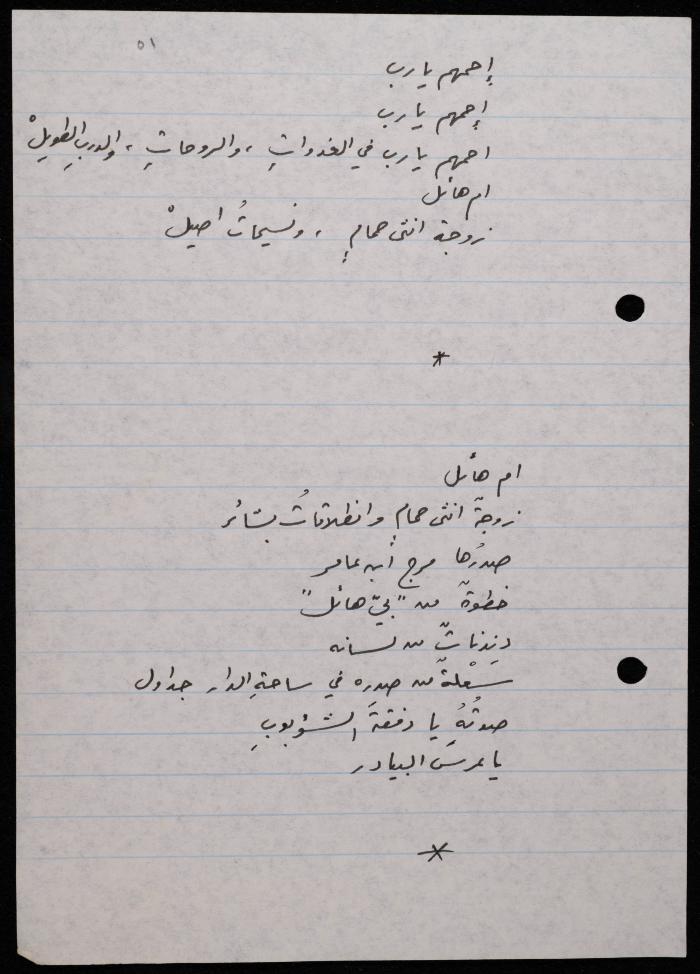 ٥١
إحمهم يا رب
إحمهم يا رب
احمهم يا رب في الغدواتِ ، والروحاتِ ، والدربِ الطويلْ
ام هائل
زوجة انثى حمامٍ ، ونسيماتُ اصيلْ
*
ام هائل
زوجةٌ انثى حمامٍ وانطلاقاتُ بشائر
صدرُها مرج ابن عامر
خطوةٌ من "بيّ هائل"
دندناتٌ من لسانه
سعْلةٌ من صدرِه في ساحةِ الدار جداول
صوتُهُ يا دفقةَ الشؤبوبِ
يا عرس البيادر
*